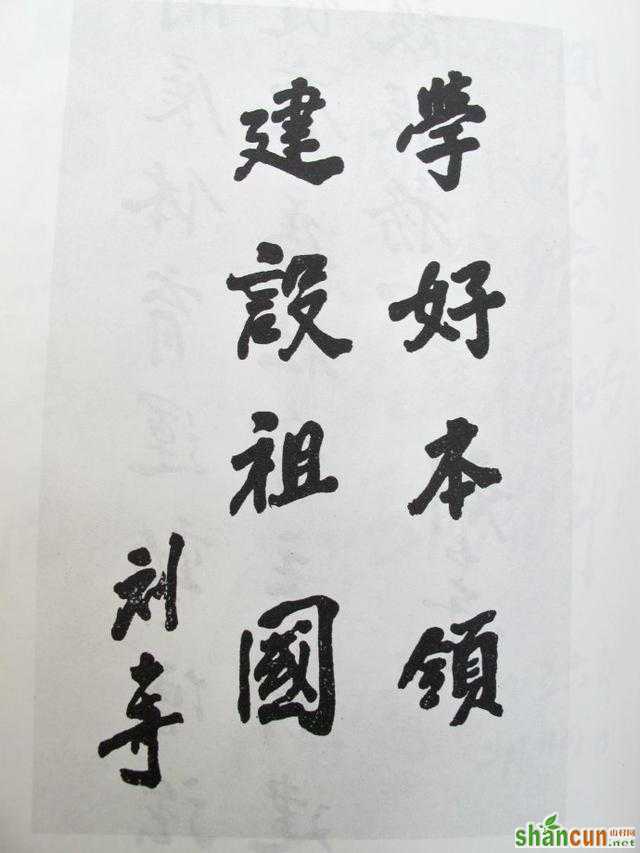 學好本領
建設祖國
刘奇
shancun
山村网
.net